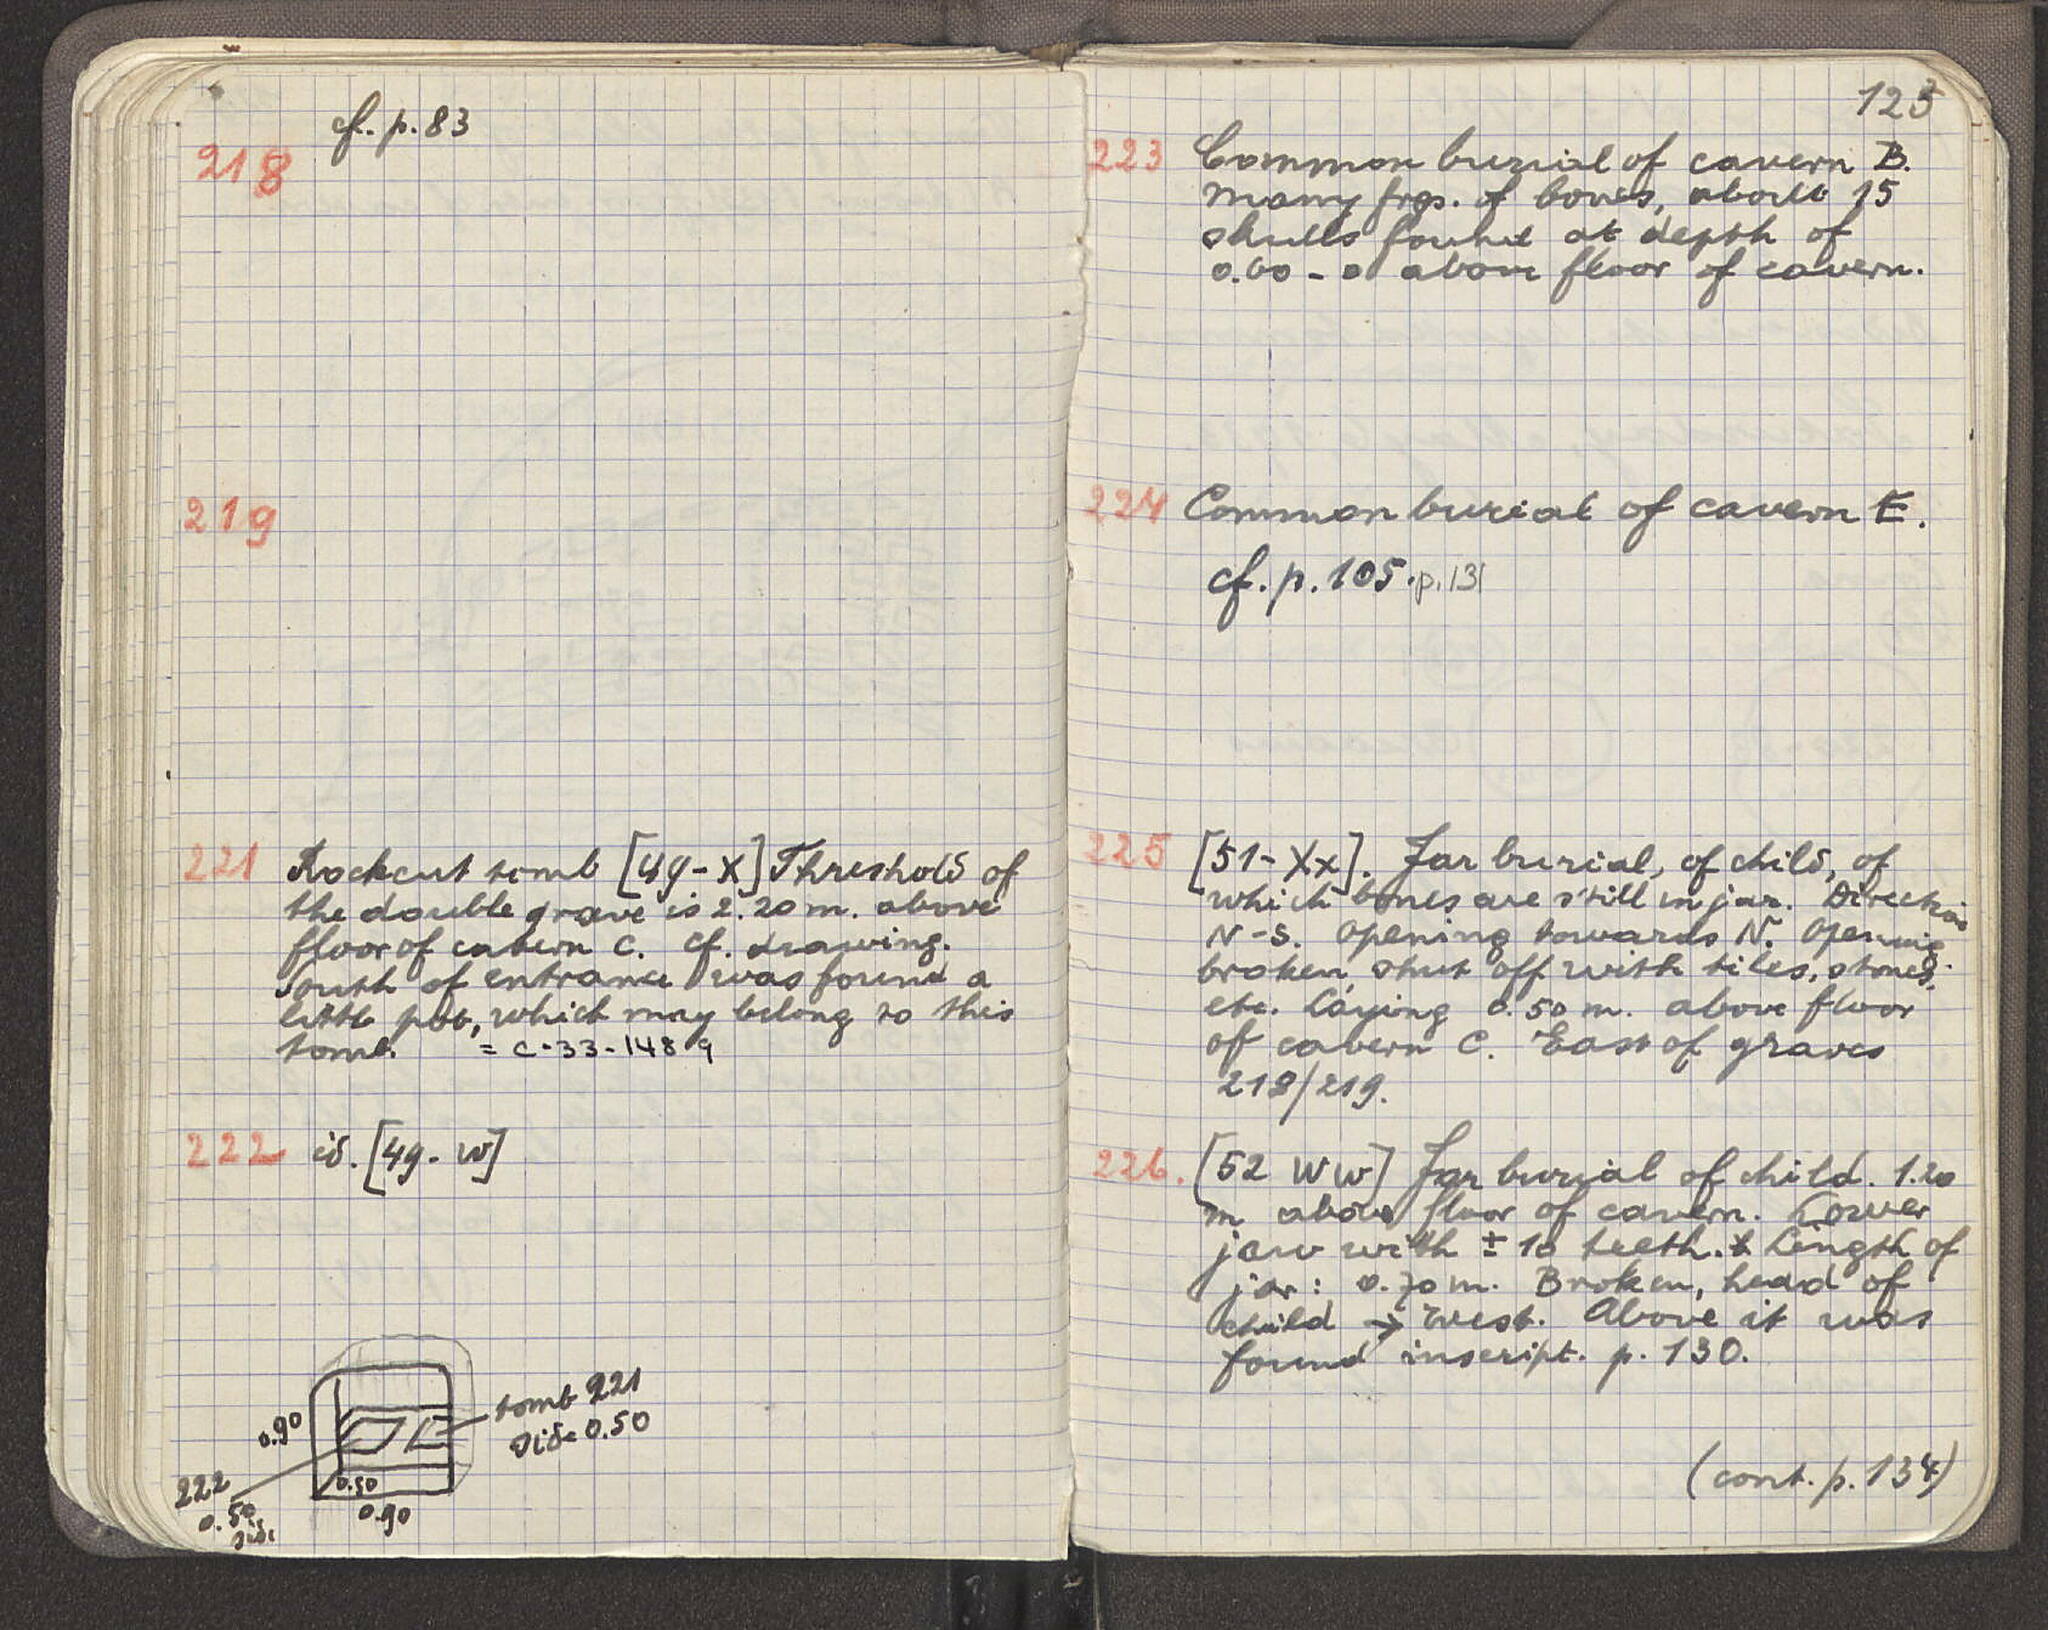 cf. p. 83
218
219
221 Rockcut tomb [49-X] Threshold of
the double grave is 2.20 m. above
floor of cavern C. Cf. drawing.
South of entrance was found a
little pot, which may belong to this
tomb. = C-33-148 9
222 id. [49-W]
0.90
tomb 221
side 0.50
222
0.50
side
0.50
0.90
123
223 Common burial of cavern B.
Many frgs. of bones, about 15
skulls found at depth of
0.60 - 0 above floor of cavern.
224 Common burial of cavern E.
cf. p. 105. p. 131
225 [51-Xx]. Jar burial, of child, of
which bones are still in jar. Direction
N-S. Opening towards N. Opening
broken, shut off with tiles, stones,
etc. Laying 0.50 m. above floor
of cavern C. East of graves
218/219.
226. [52 WW] Jar burial of child. 1.20
m above floor of cavern. Lower
jaw with ± 10 teeth. Length of
jar: 0.70 m. Broken, head of
child → West. Above it was
found inscript. p. 130.
(cont. p. 134)